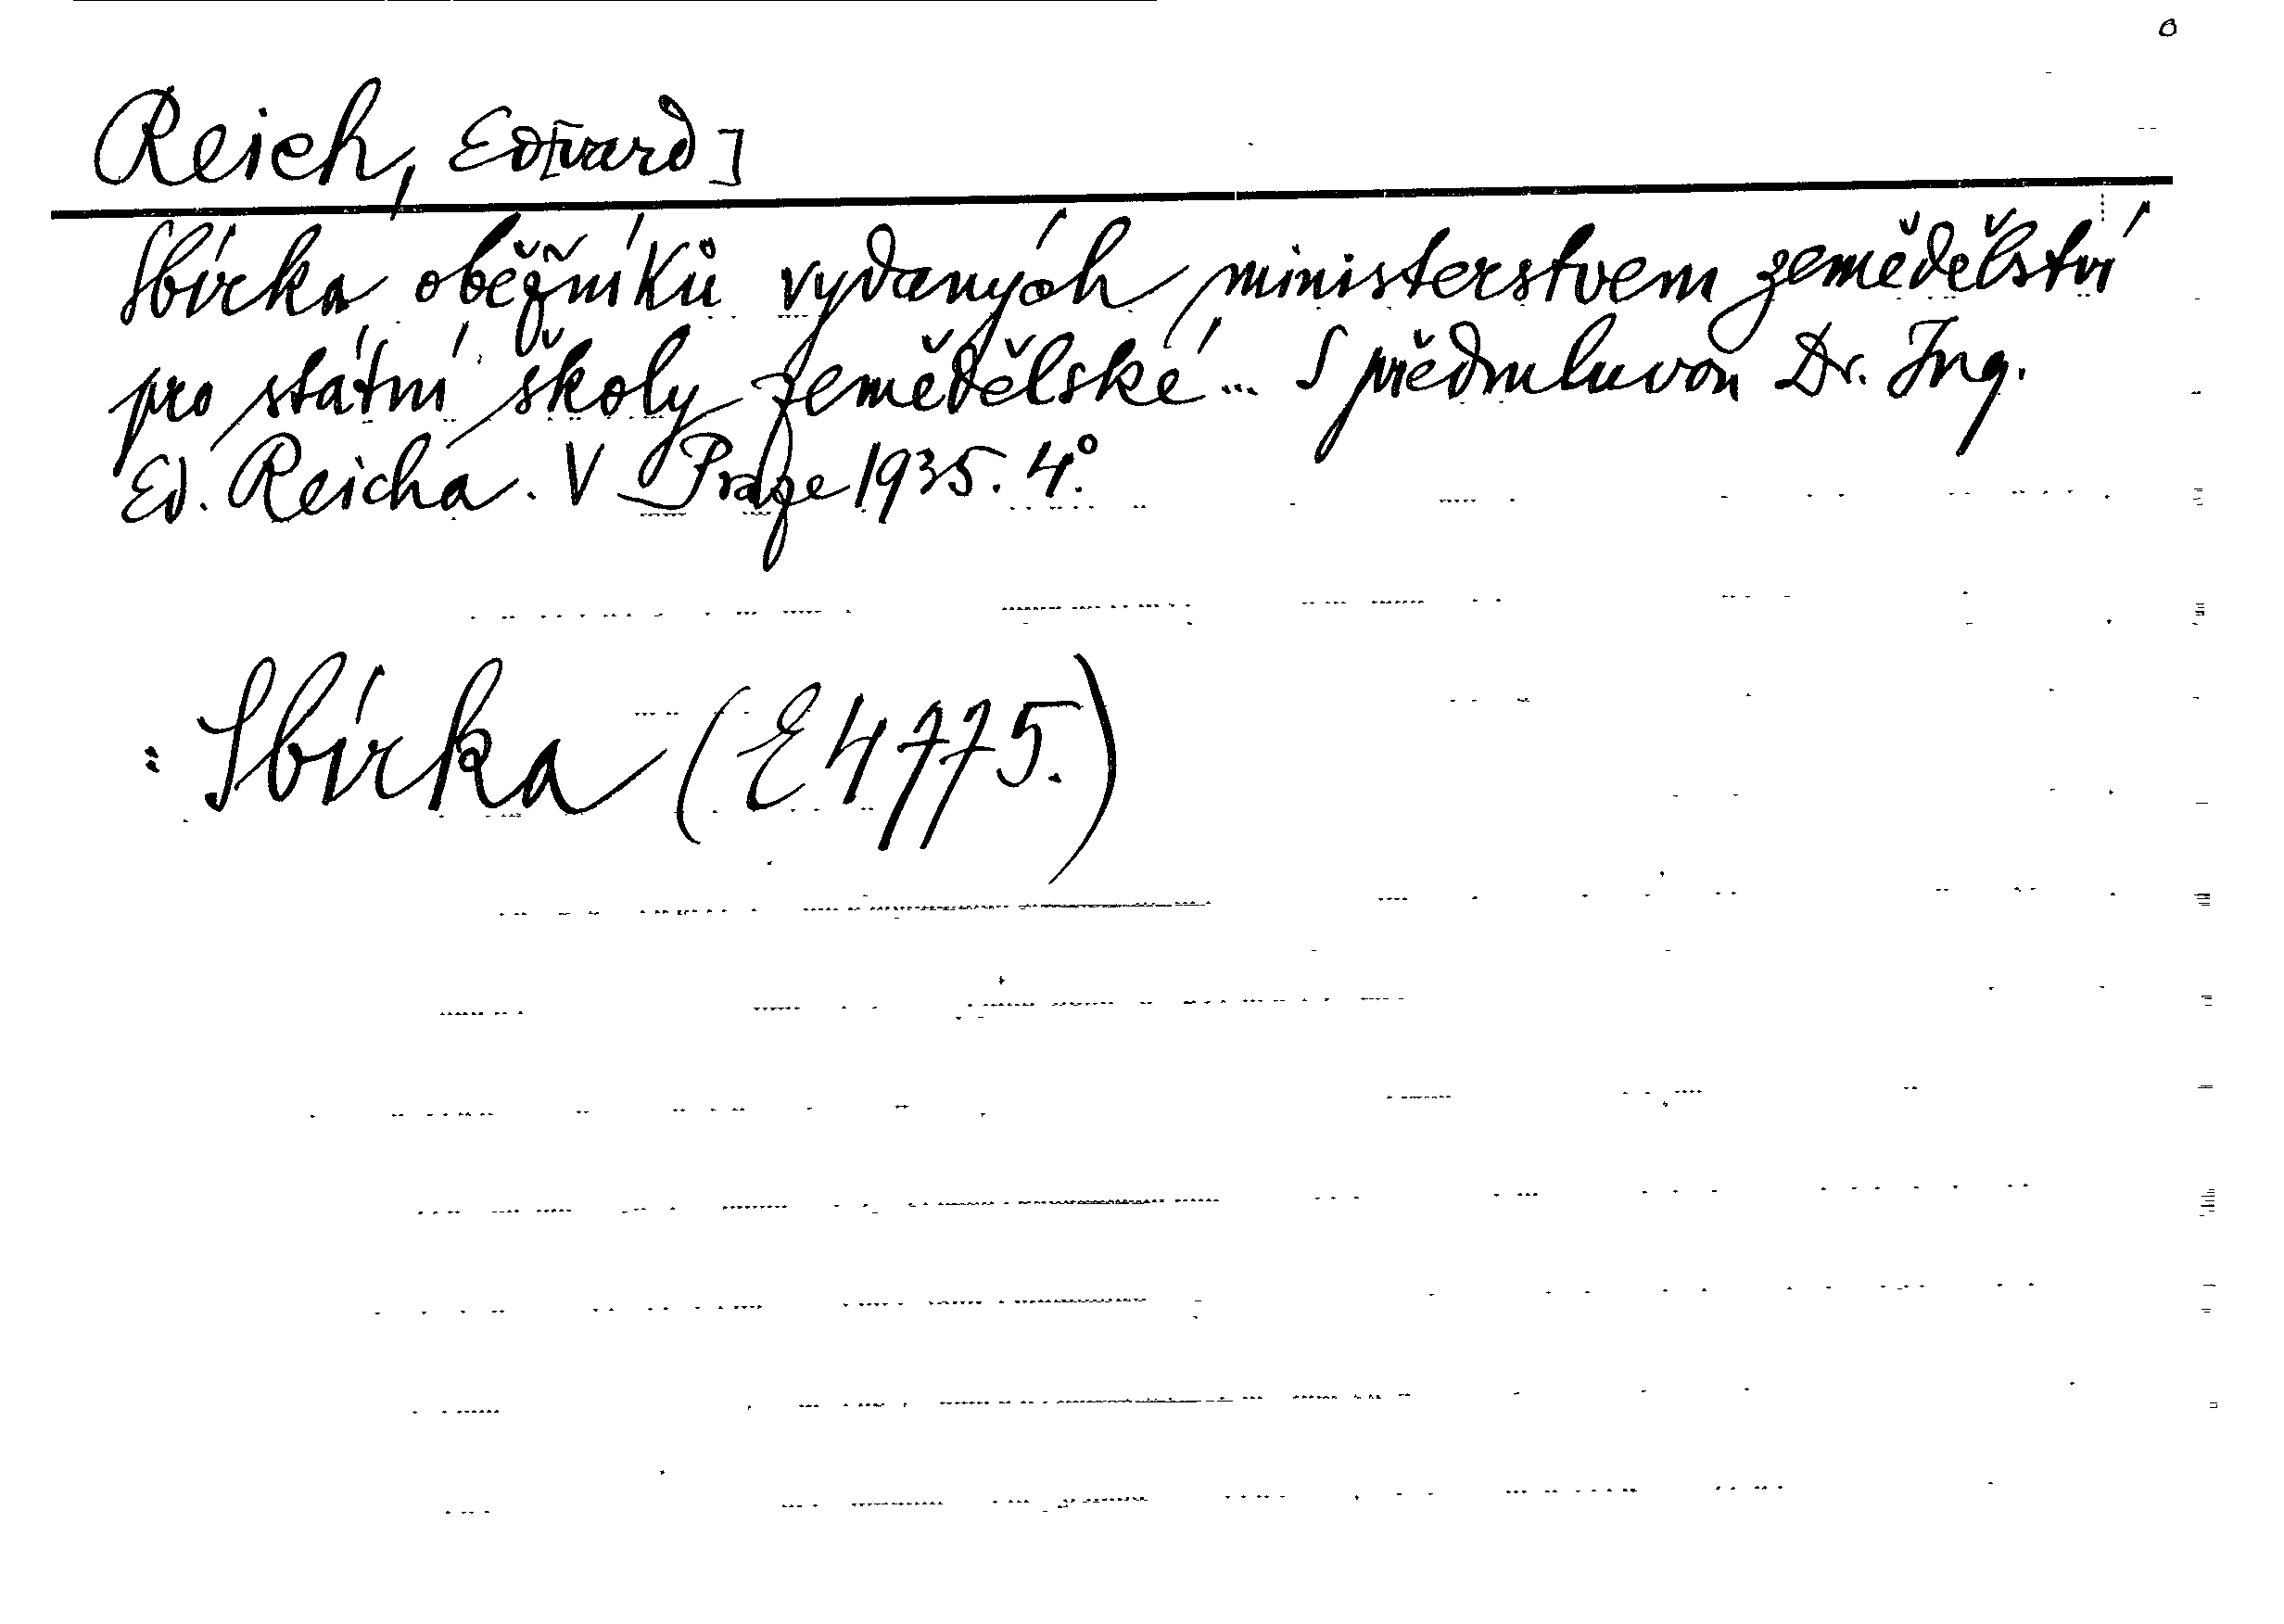 Reich, Ed[vard]
Sbírka oběžníků vydaných ministerstvem zemědělství
pro státní školy zemědělské... S předmluvou Dr. Ing.
Ed. Reicha. V Praze 1935. 4°.
: Sbírka (E 4775.)